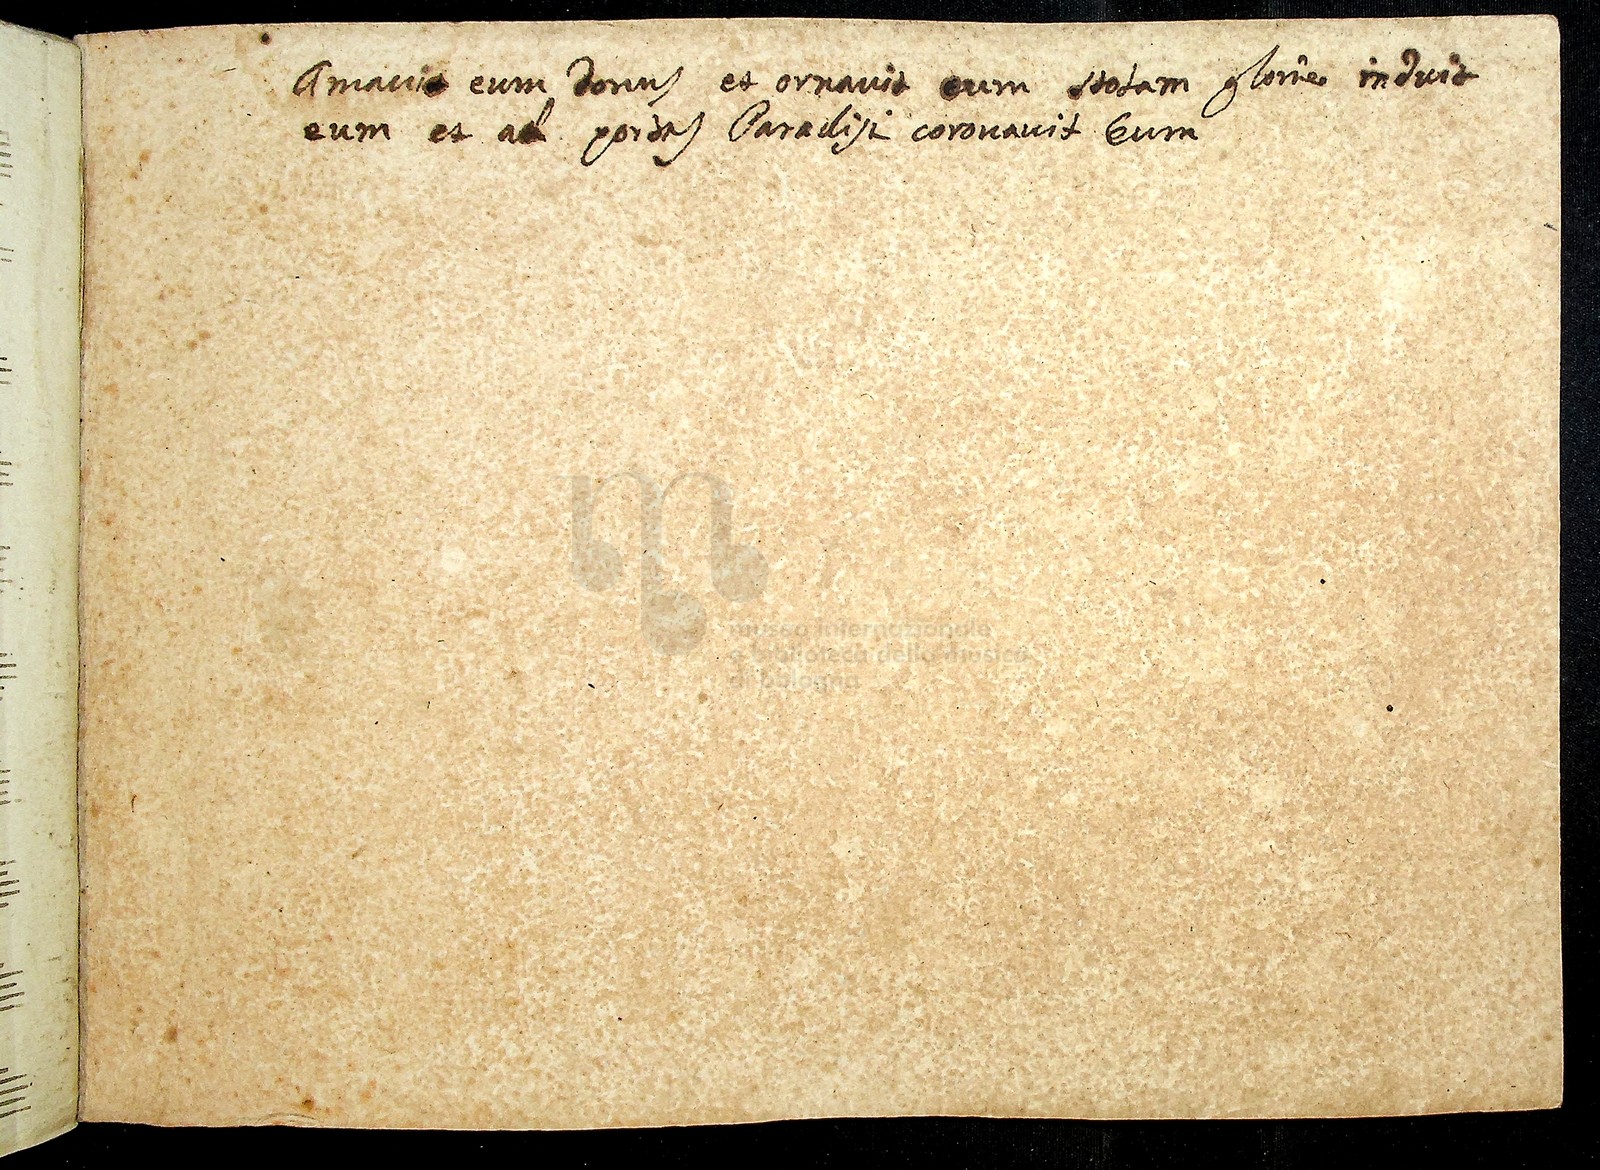 Amavit eum donus et ornavit eum stolam glorie induit
eum et ad portas Paradisi coronavit Eum
museo internazionale
e biblioteca della musica
di bologna